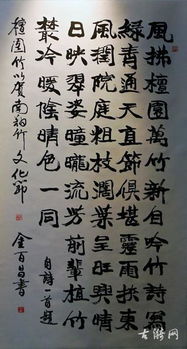 風拂檀園萬竹新自吟竹詩寫
綠青通天直節俱堪靈雨拱東
風潤院庭粗枝濶葉呈旺興晴
日映翠姿曈曨流芳前輩植竹
叢冷暖陰晴色一同 自詩一首題
檀園竹以賀南翔竹文化節 金百昌書